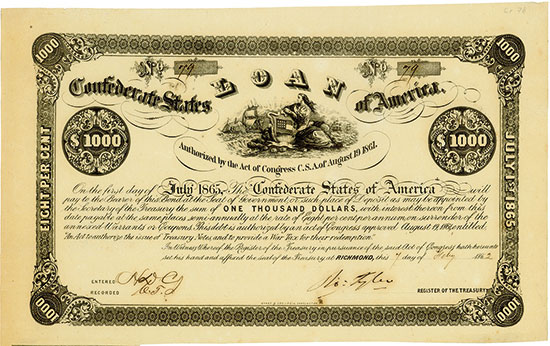 1000 1000
No 79 No 79
Confederate States LOAN of America.
Authorized by the Act of Congress C.S.A. of August 19 1861.
$1000 $1000
EIGHT PER CENT
JULY 1ST 1865
On the first day of July 1865, The Confederate States of America will
pay to the Bearer of this Bond at the Seat of Government or such place of Deposit as may be appointed by
the Secretary of the Treasury the sum of ONE THOUSAND DOLLARS, with interest thereon from this
date payable at the same places semi-annually at the rate of Eight per cent per annum on surrender of the
annexed Warrants or Coupons. This debt is authorized by an act of Congress approved August 19, 1861, entitled
"An Act to authorize the issue of Treasury Notes, and to provide a War Tax for their redemption."
In witness whereof the Register of the Treasury in pursuance of the said Act of Congress hath hereunto
set his hand and affixed the seal of the Treasury at RICHMOND, this 7 day of July 1862
ENTERED
RECORDED
REGISTER OF THE TREASURY
1000 1000